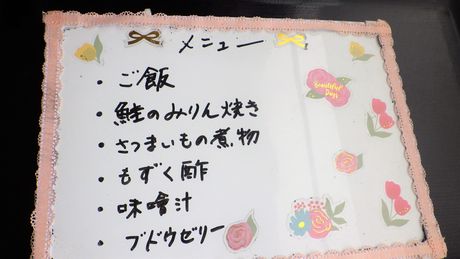 メニュー
・ご飯
・鮭のみりん焼き
・さつまいもの煮物
・もずく酢
・味噌汁
・ブドウゼリー
Beautiful
Days